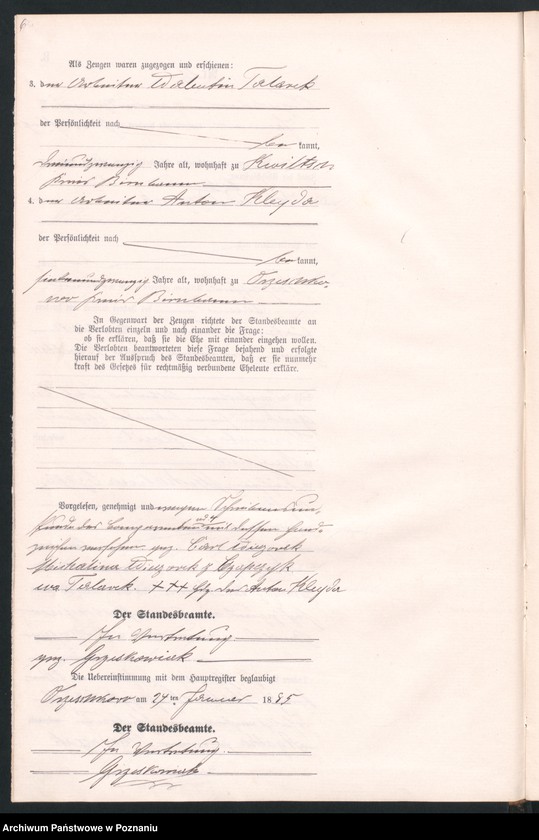 6.
Als Zeugen waren zugezogen und erschienen:
3. der Arbeiter Valentin Talarek
der Persönlichkeit nach
bekannt,
dreiundzwanzig Jahre alt, wohnhaft zu Kwiltsch
Kreis Birnbaum
4. der Arbeiter Anton Kleyda
der Persönlichkeit nach
bekannt,
siebenundzwanzig Jahre alt, wohnhaft zu Orzeschko-
wo Kreis Birnbaum
In Gegenwart der Zeugen richtete der Standesbeamte an
die Verlobten einzeln und nach einander die Frage:
ob sie erklären, daß sie die Ehe mit einander eingehen wollen.
Die Verlobten beantworteten diese Frage bejahend und erfolgte
hierauf der Ausspruch des Standesbeamten, daß er sie nunmehr
kraft des Gesetzes für rechtmäßig verbundene Eheleute erkläre.
Vorgelesen, genehmigt und wegen Schreibensun-
kunde des mit dessen Hand-
zeichen versehen gez. Carl
Michalina
Talarek. +++ Hdz. des Anton Kleyda
Der Standesbeamte.
In Vertretung
gez. Grzeskowiak
Die Uebereinstimmung mit dem Hauptregister beglaubigt
Orzeschkowo am 24ten Januar 1885
Der Standesbeamte.
In Vertretung
Grzeskowiak
Archiwum Państwowe w Poznaniu